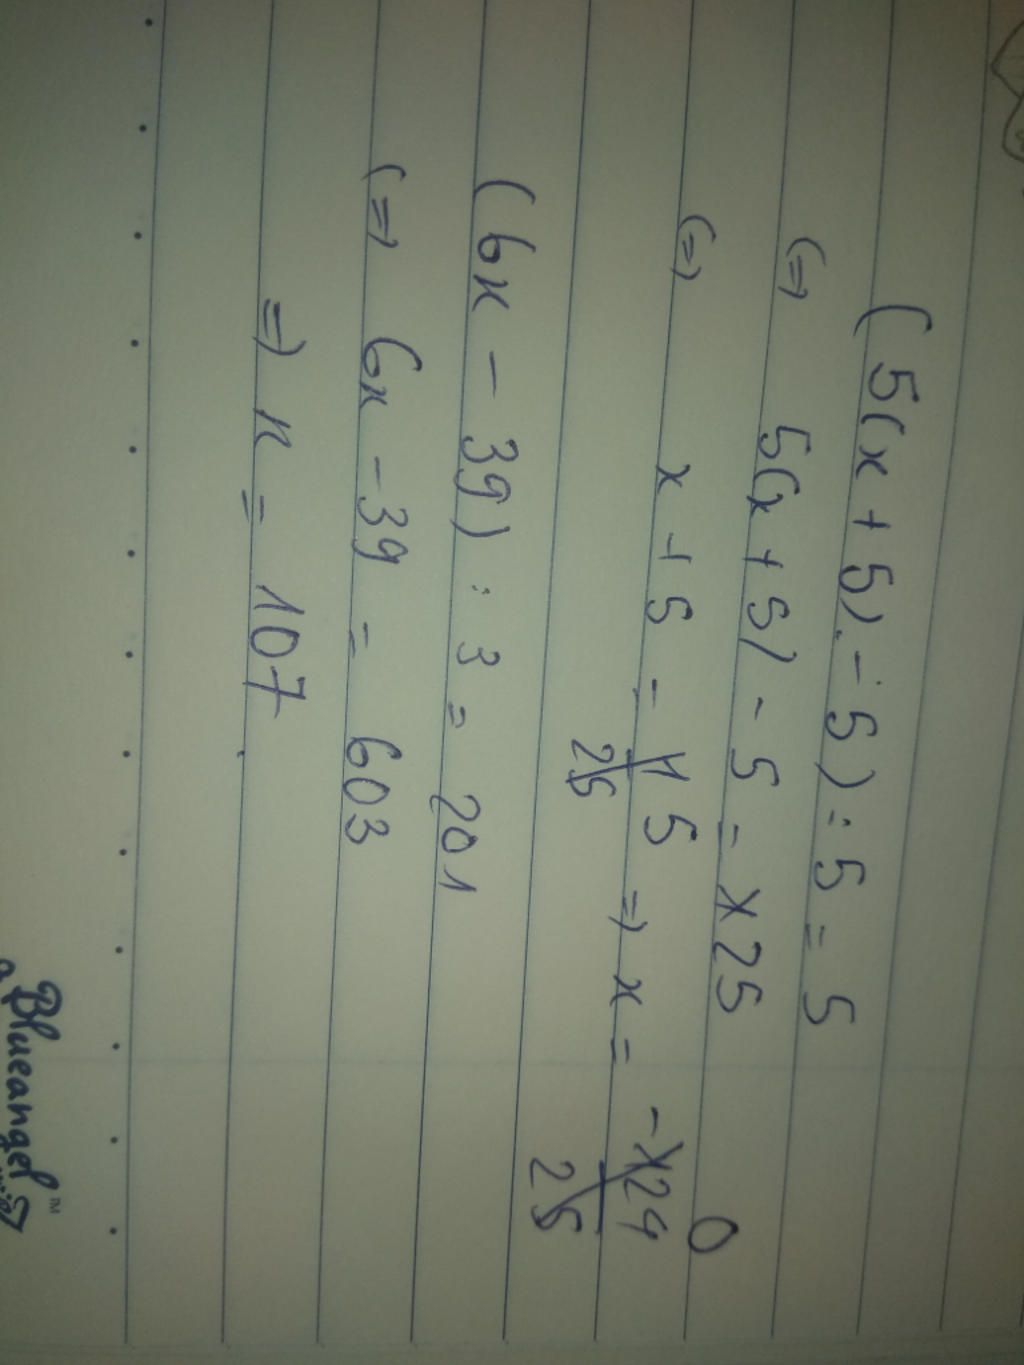 (5(x + 5) - 5) : 5 = 5
(=) 5(x + 5) - 5 = 25
(=) x + 5 = 5 => x = 0
(6x - 39) : 3 = 201
(=) 6x - 39 = 603
=> x = 107
Blueangel™